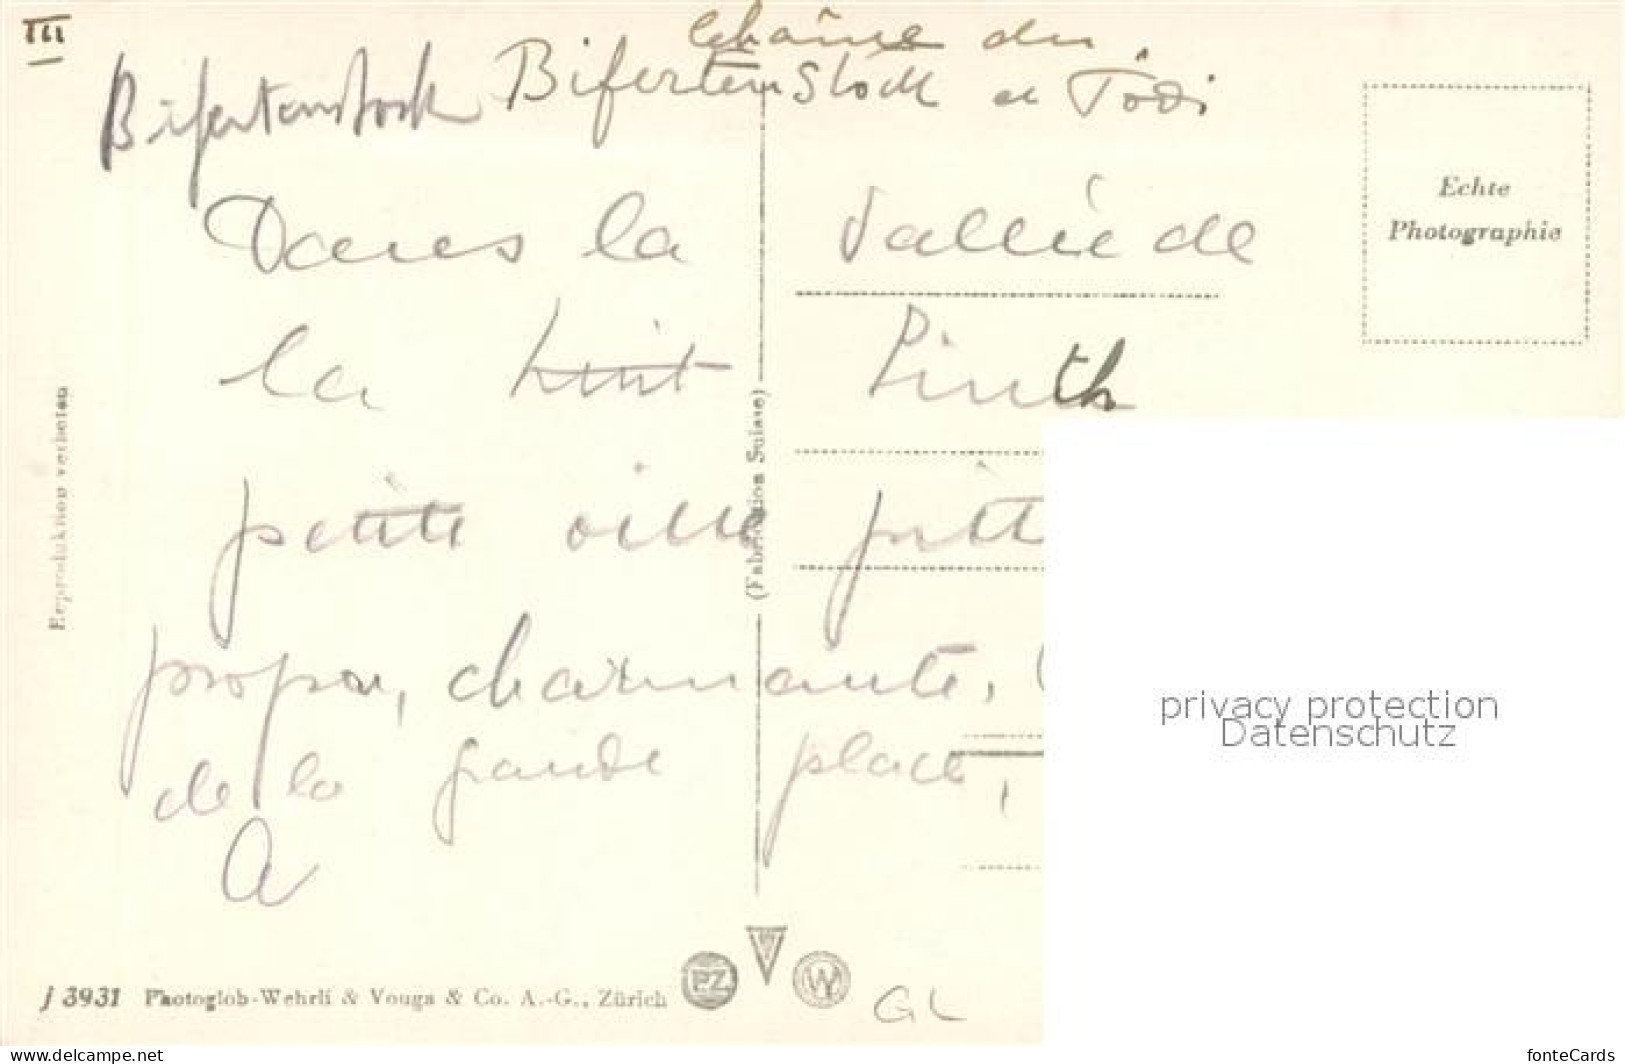 III
Chaîne du
Bifertenstock Bifertenstock et Tödi
Dans la Vallée de
Echte
Photographie
la Lint Linth
petite ville
propre, charmante,
de la grande place,
A
Reproduktion verboten
(Fabrication Suisse)
privacy protection
Datenschutz
J 3931 Photoglob-Wehrli & Vouga & Co. A.-G., Zürich
PZ
W
GL
www.delcampe.net
fonteCards